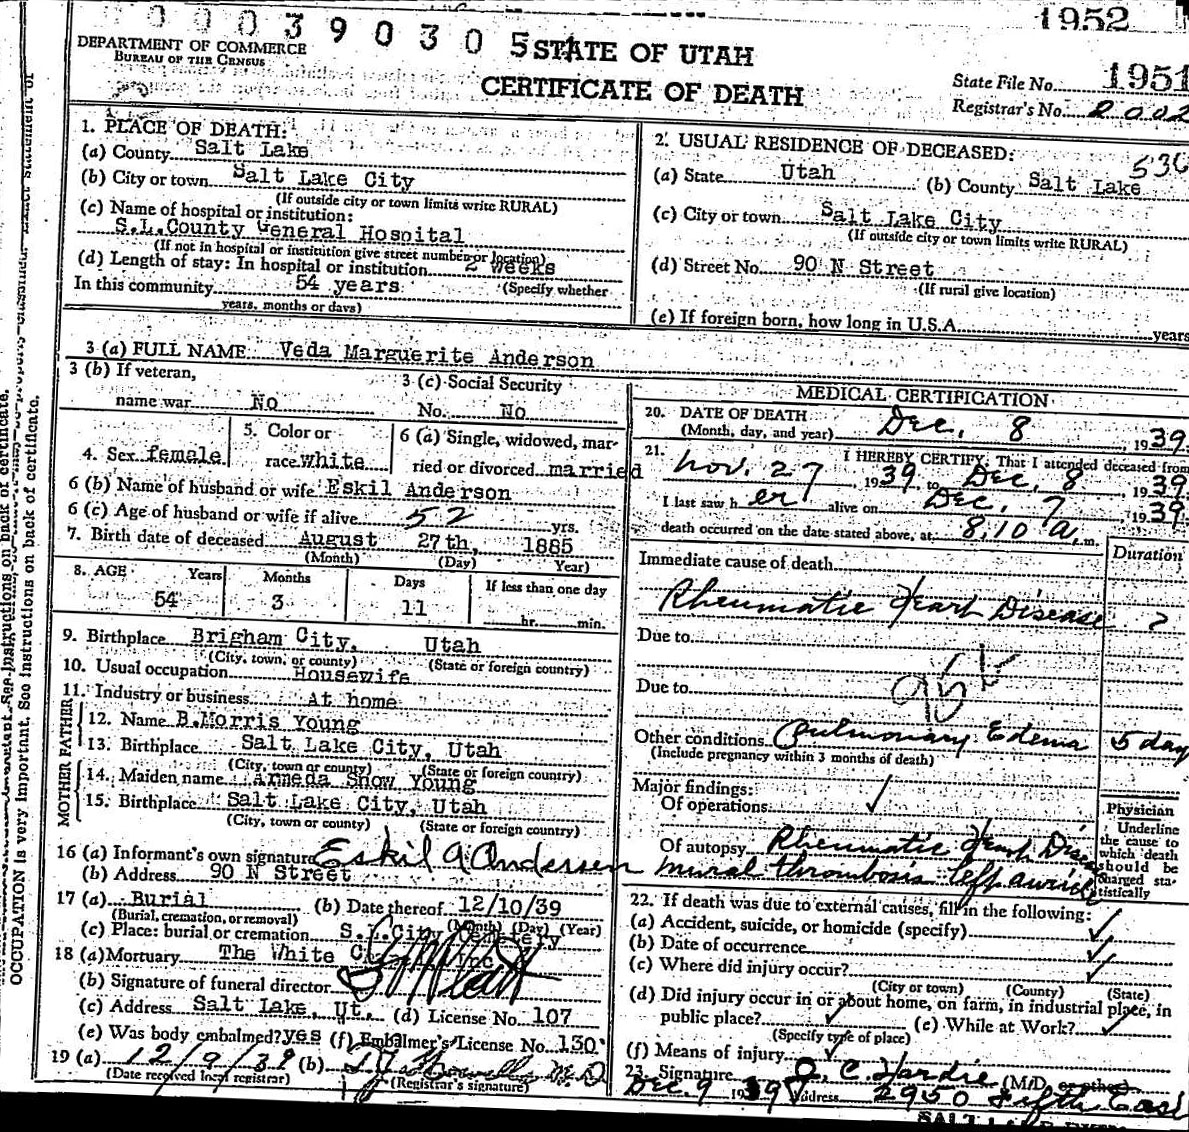 1952
0 0 0 3 9 0 3 0 5 4
DEPARTMENT OF COMMERCE
BUREAU OF THE CENSUS
STATE OF UTAH
CERTIFICATE OF DEATH
State File No. 1951
Registrar's No. 2002
1. PLACE OF DEATH:
(a) County Salt Lake
(b) City or town Salt Lake City
(If outside city or town limits write RURAL)
(c) Name of hospital or institution:
S.L.County General Hospital
(If not in hospital or institution give street number or location)
(d) Length of stay: In hospital or institution 2 weeks
In this community 54 years (Specify whether
years, months or days)
2. USUAL RESIDENCE OF DECEASED: 536
(a) State Utah (b) County Salt Lake
(c) City or town Salt Lake City
(If outside city or town limits write RURAL)
(d) Street No. 90 N Street
(If rural give location)
(e) If foreign born, how long in U.S.A. years
3 (a) FULL NAME Veda Marguerite Anderson
3 (b) If veteran,
name war No
3 (c) Social Security
No. No
4. Sex female
5. Color or
race white
6 (a) Single, widowed, mar-
ried or divorced married
6 (b) Name of husband or wife Eskil Anderson
6 (c) Age of husband or wife if alive 52 yrs.
7. Birth date of deceased August 27th, 1885
(Month) (Day) Year)
8. AGE Years Months Days If less than one day
54 3 11 hr. min.
9. Birthplace Brigham City, Utah
(City, town, or county) (State or foreign country)
10. Usual occupation Housewife
11. Industry or business At home
FATHER
12. Name B.Morris Young
13. Birthplace Salt Lake City, Utah
(City, town or county) (State or foreign country)
MOTHER
14. Maiden name Armeda Snow Young
15. Birthplace Salt Lake City, Utah
(City, town or county) (State or foreign country)
16 (a) Informant's own signature Eskil A. Andersen
(b) Address 90 N Street
17 (a) Burial (b) Date thereof 12/10/39
(Burial, cremation, or removal) (Month) (Day) (Year)
(c) Place: burial or cremation S.L.City Cemetery
18 (a) Mortuary The White
(b) Signature of funeral director
(c) Address Salt Lake, Ut. (d) License No. 107
(e) Was body embalmed? yes (f) Embalmer's License No. 130
19 (a) 12/9/39 (b) M.D
(Date received local registrar) (Registrar's signature)
MEDICAL CERTIFICATION
20. DATE OF DEATH
(Month, day, and year) Dec. 8 1939.
21. I HEREBY CERTIFY, That I attended deceased from
Nov. 27, 1939 to Dec. 8, 1939.
I last saw h er alive on Dec. 7 1939.
death occurred on the date stated above, at 8:10 a. m.
Immediate cause of death Duration
Rheumatic Heart Disease ?
Due to
Due to
Other conditions Pulmonary Edema 5 day
(Include pregnancy within 3 months of death)
Major findings:
Of operations
Of autopsy Rheumatic Heart Disease
mural thrombosis left auricle
Physician
Underline
the cause to
which death
should be
charged sta-
tistically
22. If death was due to external causes, fill in the following:
(a) Accident, suicide, or homicide (specify)
(b) Date of occurrence
(c) Where did injury occur?
(City or town) (County) (State)
(d) Did injury occur in or about home, on farm, in industrial place, in
public place? (e) While at Work?
(Specify type of place)
(f) Means of injury
23. Signature O. C. Hardie (M.D. or other)
Dec 9 1939 Address 2950 Fifth East
OCCUPATION is very important. See instructions on back of certificate.